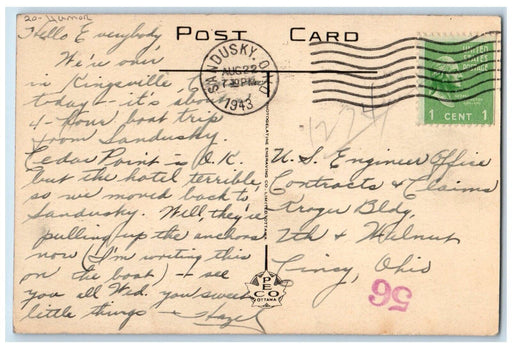 20-Humor
POST CARD
Hello Everybody
We're over
in Kingsville,
today - it's about
4-hour boat trip
from Sandusky.
Cedar Point is O.K.
but the hotel terrible,
so we moved back to
Sandusky. Well they're
pulling up the anchors
now (I'm writing this
on the boat) - see
you all Wed. you sweet
little things - Hazel
SANDUSKY, OHIO
AUG 22
7 30 PM
1943
UNITED
STATES
POSTAGE
1 CENT 1
U.S. Engineer Office
Contracts & Claims
Kroger Bldg.
7th & Walnut
Cincy, Ohio
PECO
OTTAWA
56